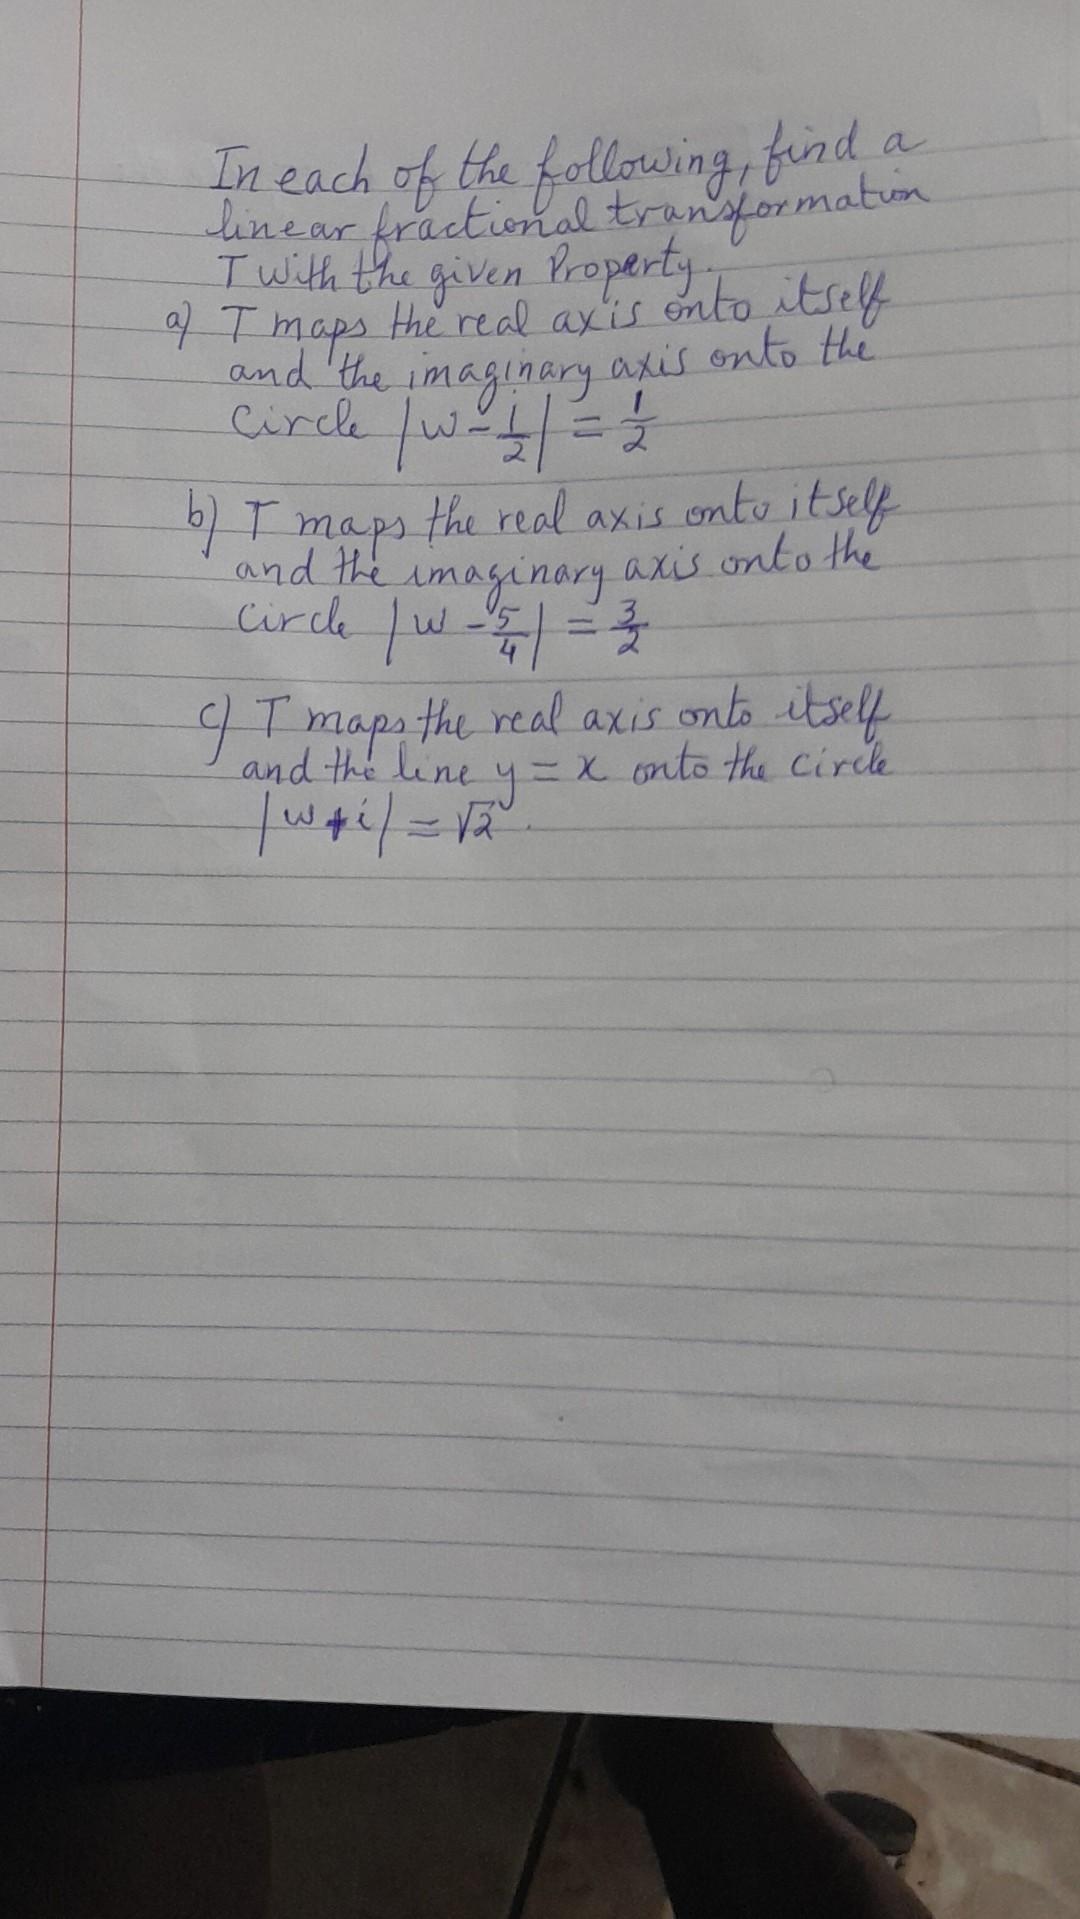 In each of the following, find a
linear fractional transformation
T with the given Property.
a) T maps the real axis onto itself
and the imaginary axis onto the
circle |w - 1/2| = 1/2
b) T maps the real axis onto itself
and the imaginary axis onto the
circle |w - 5/4| = 3/2
c) T maps the real axis onto itself
and the line y = x onto the circle
|w + i| = √2.